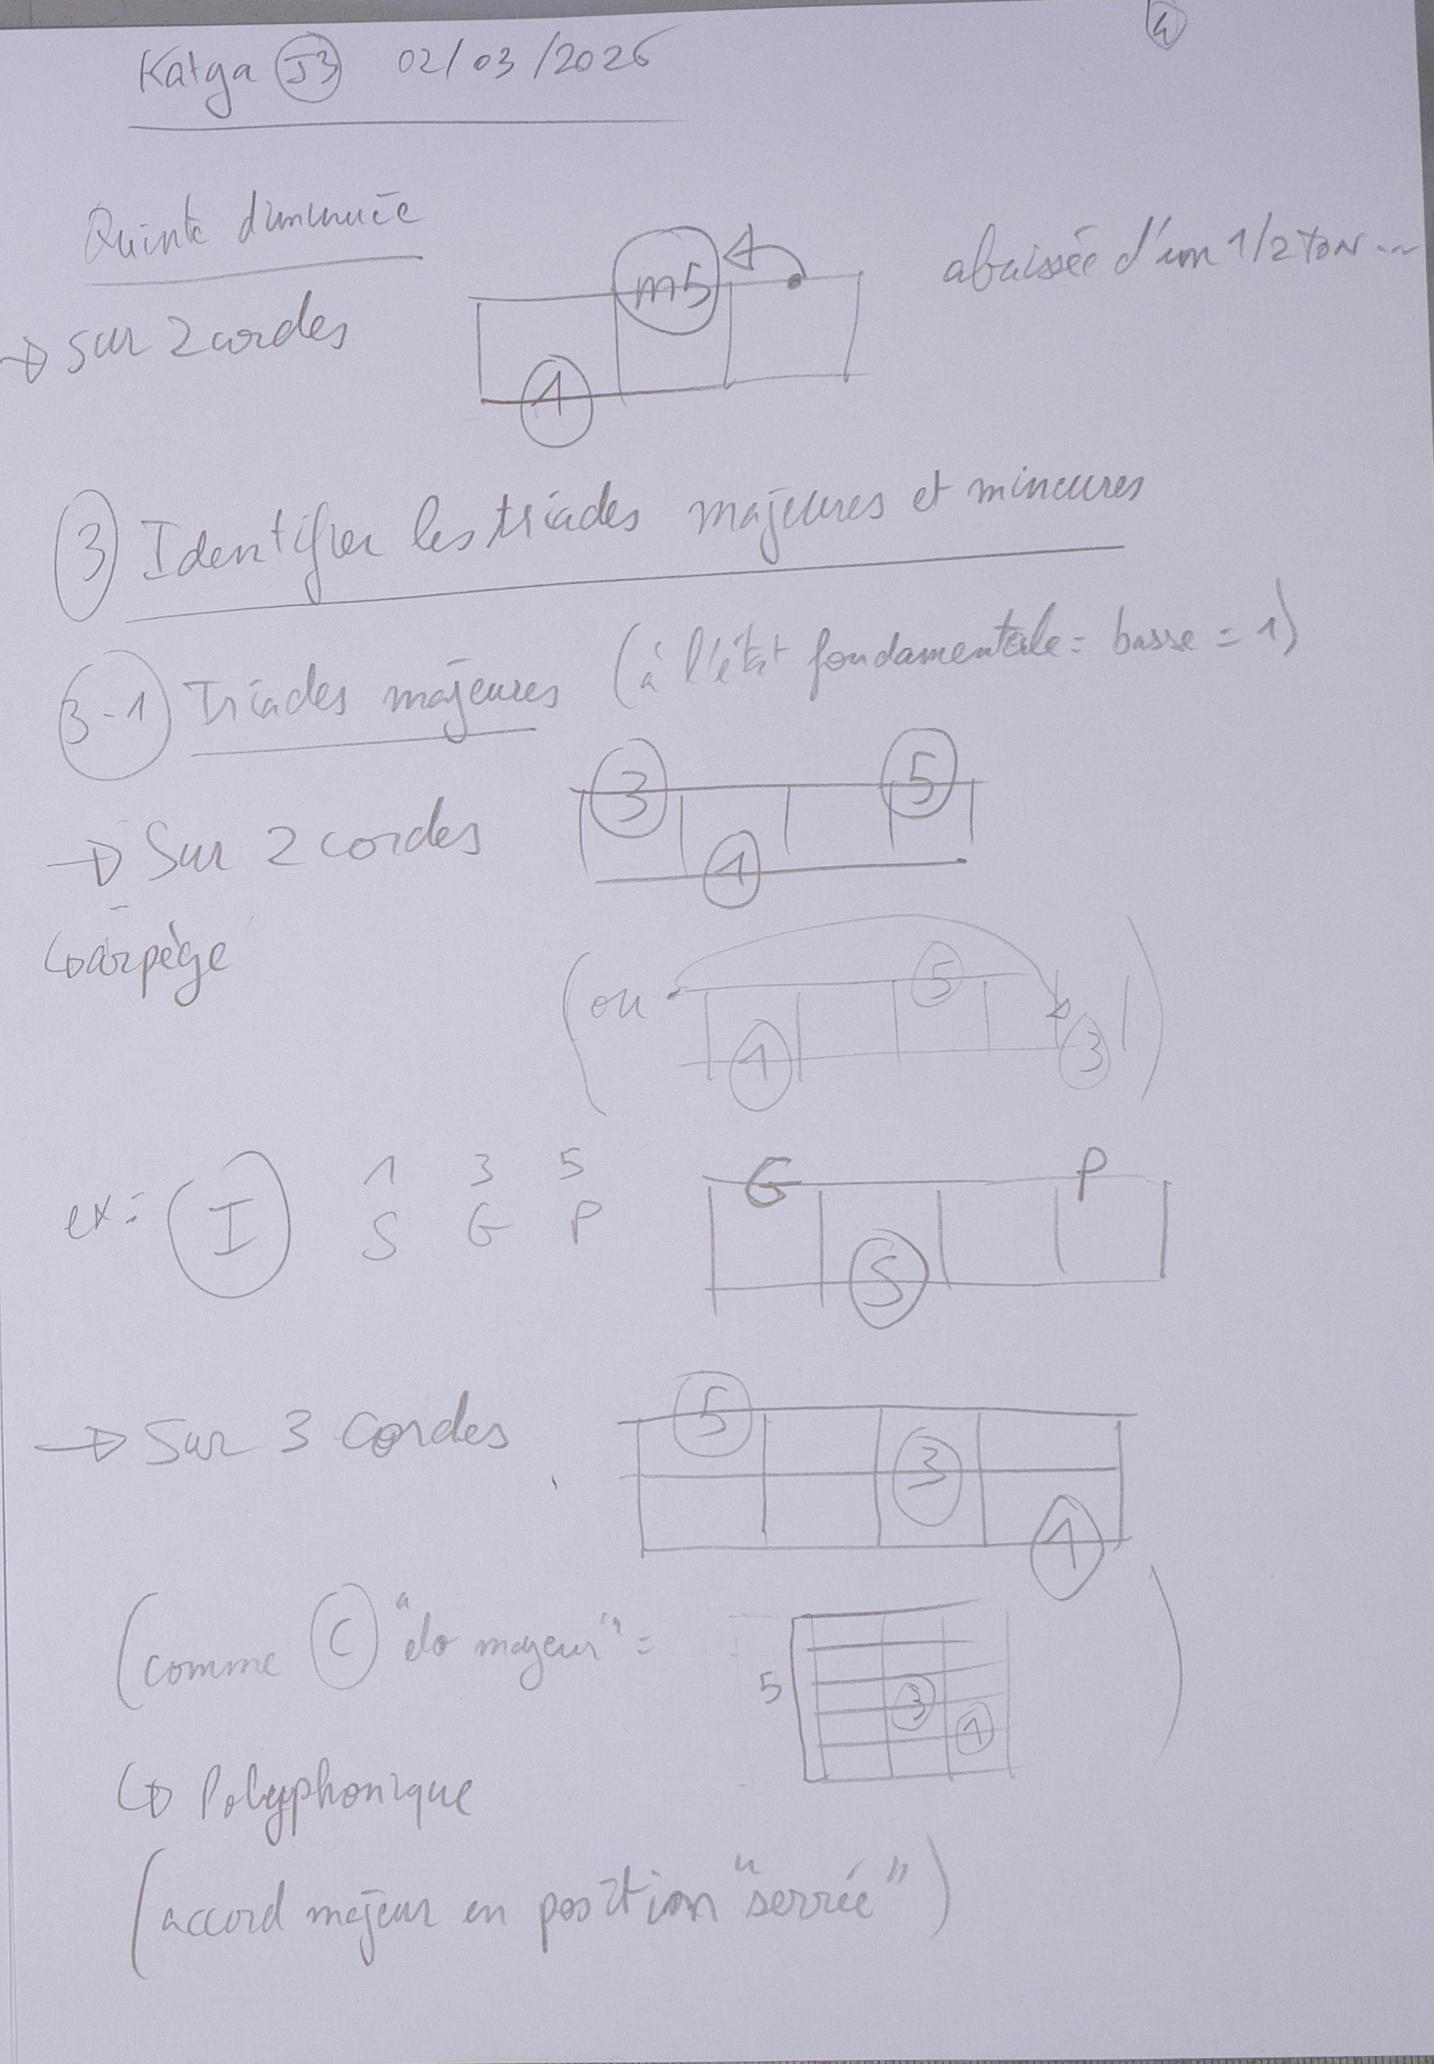 Katga J3 02/03/2026
4
Quinte diminuée
m5
abaissée d'un 1/2 ton...
→ sur 2 cordes
1
3 Identifier les triades majeures et mineures
3-1 Triades majeures (à l'état fondamentale = basse = 1)
3 5
→ Sur 2 cordes
1
↳ arpège
(ou 5
1 3 )
ex: I 1 3 5
S G P
G P
S
→ Sur 3 cordes
5
3
1
(comme C "do majeur" =
5 3
1 )
↳ Polyphonique
(accord majeur en position "serrée")